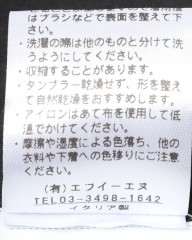 はブラシなどで表面を整えて下
さい。
・洗濯の際は他のものと分けて洗
うようにしてください。
・収縮することがあります。
・タンブラー乾燥せず、形を整え
て自然乾燥をおすすめします。
・アイロンはあて布を使用して低
温でかけてください。
・摩擦や湿度による色落ち、他の
衣料や下着への色移りにご注意
ください。
(有)エフイーエヌ
TEL03-3498-1642
イタリア製